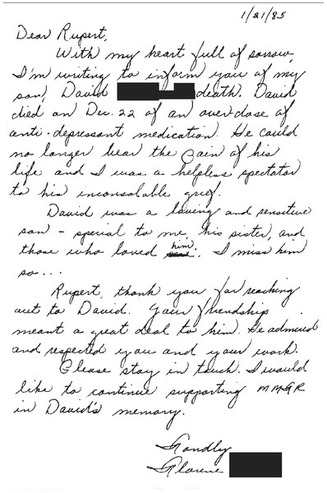 1/21/85
Dear Rupert,
With my heart full of sorrow,
I'm writing to inform you of my
son, David death. David
died on Dec. 22 of an overdose of
anti-depressant medication. He could
no longer bear the pain of his
life and I was a helpless spectator
to his inconsolable grief.
David was a loving and sensitive
son - special to me, his sister, and
those who loved him. I miss him
so...
Rupert, thank you for reaching
out to David. Your friendship
meant a great deal to him. He admired
and respected you and your work.
Please stay in touch. I would
like to continue supporting MMGR
in David's memory.
Fondly
Florence